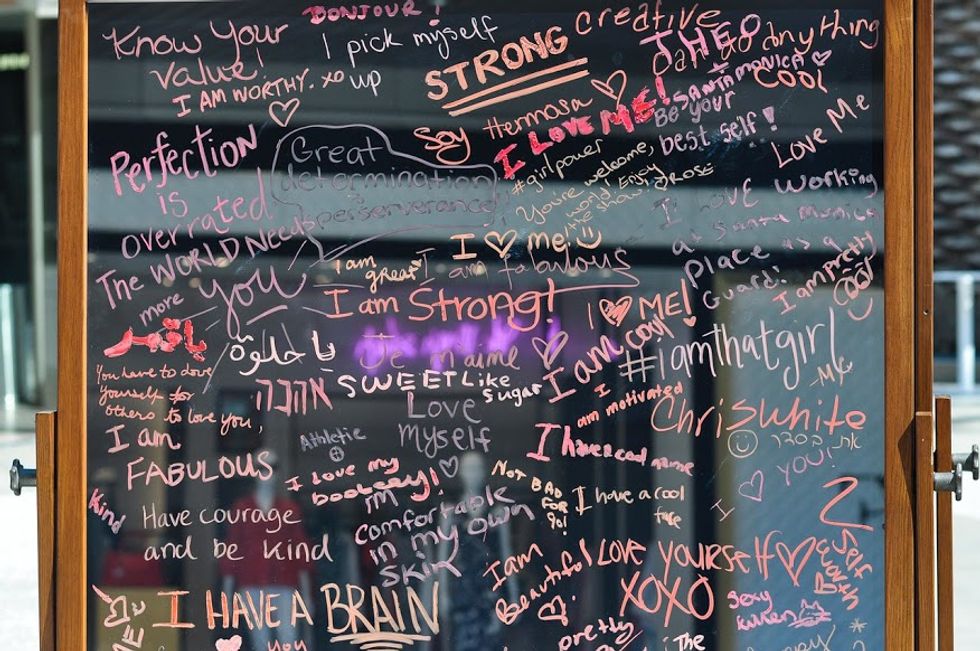 BONJOUR!
Know Your
Value!
I AM WORTHY. xo
I pick myself
up
STRONG
creative
do anything
COOL
SANTA MONICA
Be your
best self!
Love Me
Soy Hermosa
I LOVE ME!
#girlpower
You're welcome,
world. Enjoy
the show
ROSE
Perfection
is
overrated
Great
determination
perserverance
I Love working
at Santa Monica
Place as a
Guard!
The WORLD Needs
more you
I ♡ me!
I am
great
I am fabulous
I am Strong!
I ♡ ME!
I am pretty
cool
يا حلوة
Je m'aime
I am cool
#IamThatgirl
- Me
You have to love
yourself for
others to love you,
אהבה
SWEET Like
Sugar
I
am motivated
Chriswhite
I am
FABULOUS
Athletic
Love
Myself
I have cool name
את בסדר
I ♡ YOU!
I love my
boobeey!
NOT BAD
FOR
90!
I have a cool
face
Kind
Have courage
and be kind
I'm
comfortable
in my own
skin
I am
Beautiful
LOVE YOURSELF ♡
XOXO
Self
Worth
sexy
kitten
I HAVE A BRAIN
you
pretty
The